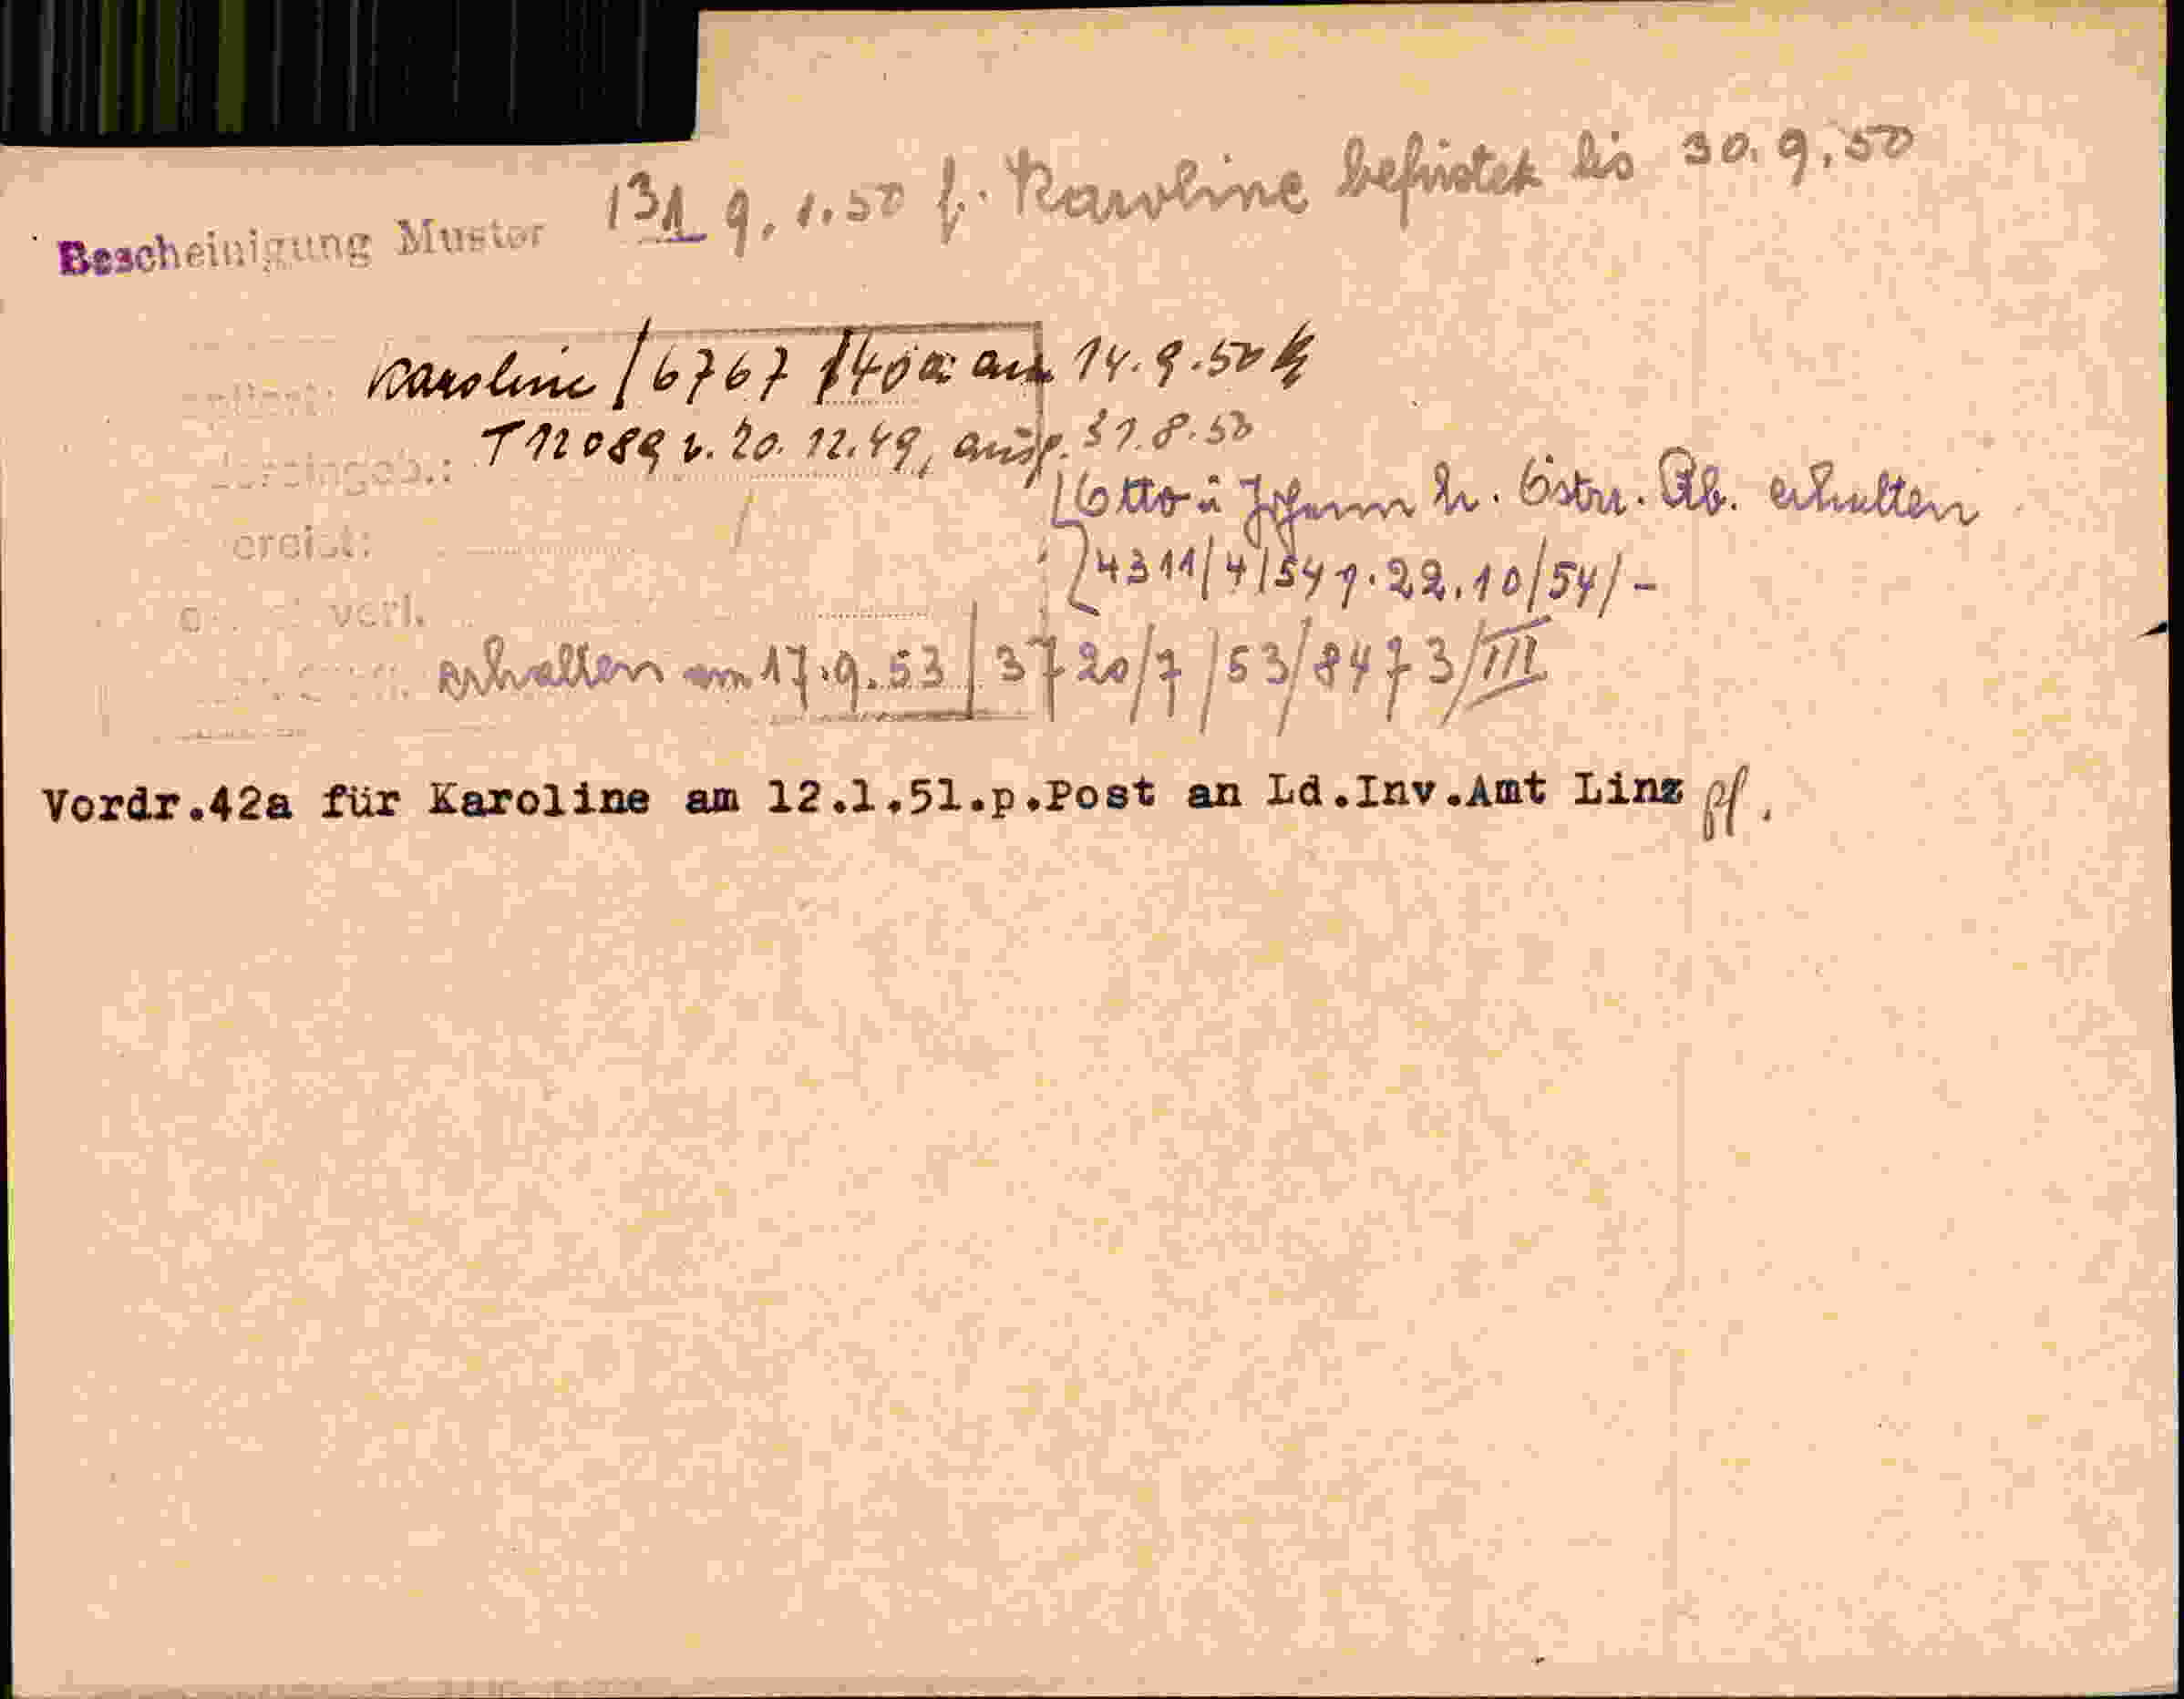 Bescheinigung Muster 131 9.1.50 f. Karoline befristet bis 30.9.50
Karoline / 6767 /40a am 14.9.50
T12089 v. 20.12.49, ausg. 31.8.50
Otto u Johann h. Östr. Stb. erhalten
4311/4/54 v. 22.10/54/-
ereist:
verl.
erhalten am 17.9.53 / 3720/7/53/8473/III
Vordr.42a für Karoline am 12.1.51.p.Post an Ld.Inv.Amt Linz pf.